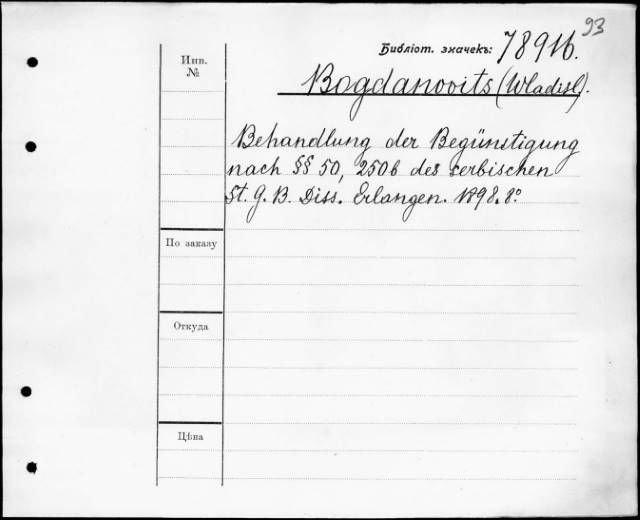 93
Библіот. значекъ: 78916.
Инв.
№
Bogdanovits (Wladisl).
Behandlung der Begünstigung
nach §§ 50, 250b des serbischen
St. G. B. Diss. Erlangen. 1898. 8º
По заказу
Откуда
Цѣна